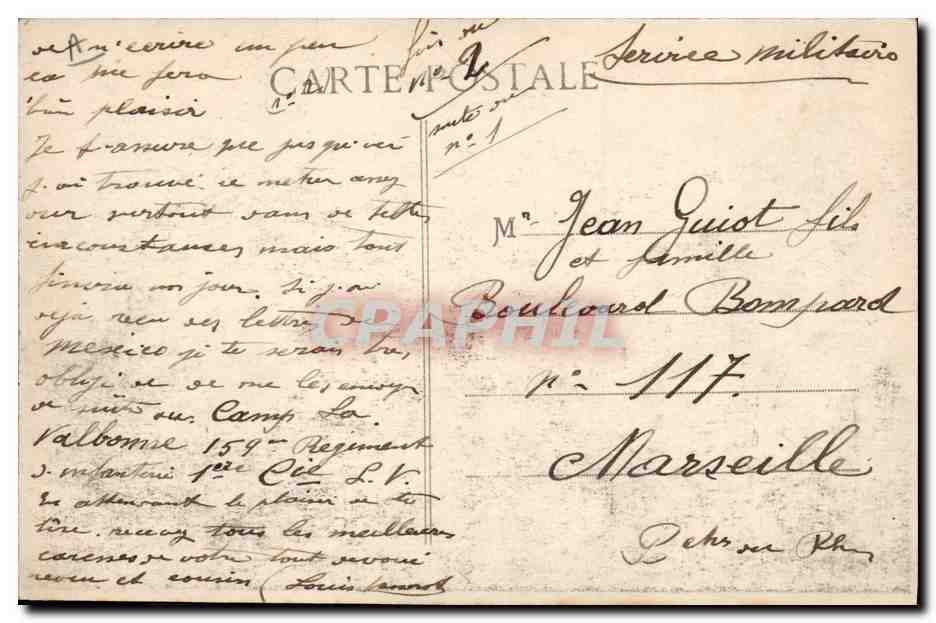 de m'écrire un peu
ca me fera
bien plaisir n° 2
Je t'assure que jusqu'ici
j'ai trouvé ce métier assez
dur surtout dans de telles
circonstances mais tout
finira un jour. Si j'ai
déja recu des lettres de
Mexico je te serais très
obligé de de me les envoyer
de suite au Camp La
Valbonne 159me Regiment
d'infanterie 1ere Cie S.V.
En attendant le plaisir de te
lire recevez tous les meilleures
caresses de votre tout devoué
neveu et cousin (Louis
fois au
n° 2
CARTE POSTALE
suite du
n° 1
Service militaire
Mr Jean Guiot fils
et famille
Boulevard Bompard
n° 117.
Marseille
Bches du Rh
CPAPHIL